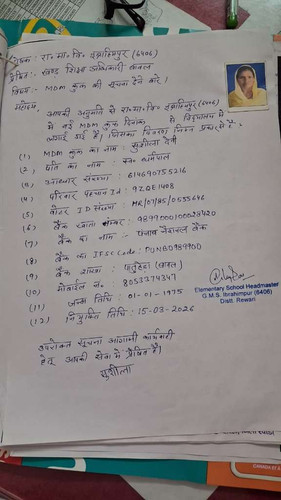 प्रेषक:- रा. मा. वि. इब्राहिमपुर (6406)
प्रेषित:- खण्ड शिक्षा अधिकारी बावल
विषय:- MDM कुक की सूचना देने बारे।
महोदय,
आपकी अनुमति से रा. मा. वि. इब्राहिमपुर (6406)
में नई MDM कुक दिनांक से विद्यालय में
लगाई गई है। जिसका विवरण निम्न प्रकार से है:-
(1) MDM कुक का नाम : सुशीला देवी
(2) पति का नाम : स्व० धर्मपाल
(3) आधार संख्या : 614690755216
(4) परिवार पहचान Id : 9ZQE1408
(5) वोटर ID संख्या : HR/07/85/0555646
(6) बैंक खाता नम्बर :
(7) बैंक का नाम - पंजाब नैशनल बैंक
(8) बैंक का IFSC Code : PUNB0989900
(9) बैंक शाखा : (बावल)
(10) मोबाईल न० : 8053274347
(11) जन्म तिथि : 01-01-1975
(12) नियुक्ति तिथि : 15-03-2026
Elementary School Headmaster
G.M.S. Ibrahimpur (6406)
Distt. Rewari
उपरोक्त सूचना आगामी कार्यवाही
हेतू आपकी सेवा में प्रेषित है।
सुशीला